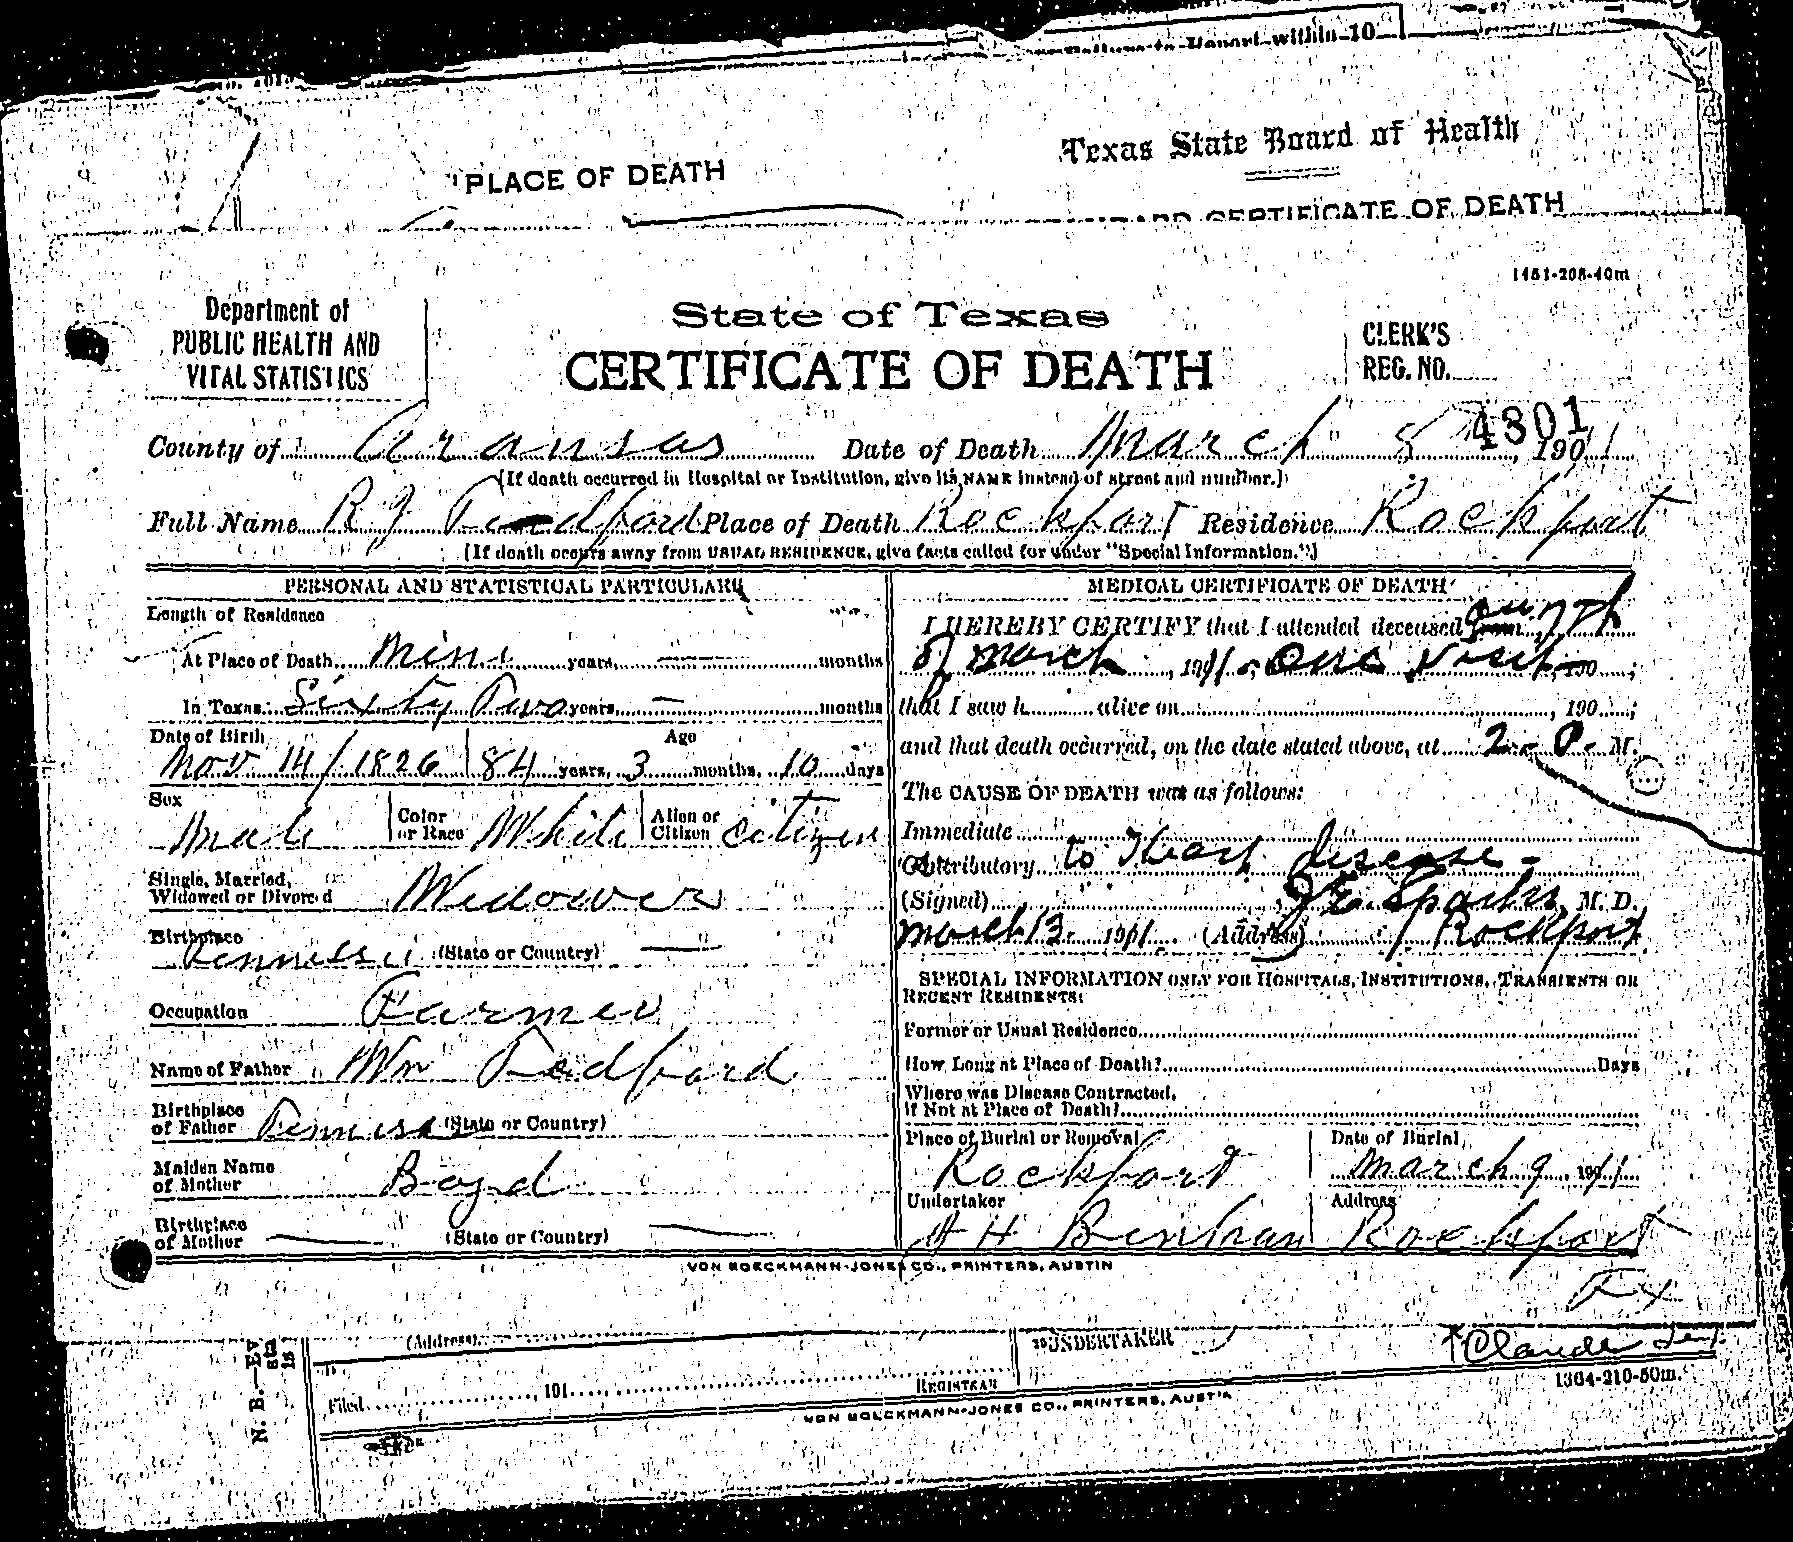 Return to Report within 10
PLACE OF DEATH
Texas State Board of Health
CERTIFICATE OF DEATH
1451-208-40m
Department of
PUBLIC HEALTH AND
VITAL STATISTICS
State of Texas
CERTIFICATE OF DEATH
CLERK'S
REG. NO.
4301
County of Aransas Date of Death March 8 1911
(If death occurred in Hospital or Institution, give its NAME instead of street and number.)
Full Name R J Tedford Place of Death Rockport Residence Rockport
(If death occurs away from USUAL RESIDENCE, give facts called for under "Special Information.")
PERSONAL AND STATISTICAL PARTICULARS
Length of Residence
At Place of Death Nine years — months
In Texas Sixty Two years — months
Date of Birth Age
Nov 14/1826 84 years, 3 months, 10 days
Sex Male Color or Race White Alien or Citizen Citizen
Single, Married,
Widowed or Divorced Widower
Birthplace
Tennessee (State or Country) —
Occupation Farmer
Name of Father Wm Tedford
Birthplace
of Father Tennessee (State or Country)
Maiden Name
of Mother Boyd
Birthplace
of Mother — (State or Country) —
MEDICAL CERTIFICATE OF DEATH
I HEREBY CERTIFY that I attended deceased from
of March, 1911, one visit, 190 ;
that I saw h alive on , 190 ;
and that death occurred, on the date stated above, at 2- P. M.
The CAUSE OF DEATH was as follows:
Immediate
Contributory to Heart disease -
(Signed) Sparks, M. D.
March 13 1911 (Address) Rockport
SPECIAL INFORMATION ONLY FOR HOSPITALS, INSTITUTIONS, TRANSIENTS OR
RECENT RESIDENTS:
Former or Usual Residence
How Long at Place of Death? Days
Where was Disease Contracted,
If Not at Place of Death?
Place of Burial or Removal Date of Burial,
Rockport March 9, 1911
Undertaker Address
A H Rockport
Tex
VON BOECKMANN-JONES CO., PRINTERS, AUSTIN
(Address)
UNDERTAKER
Claude
Filed 191
REGISTRAR
1364-210-50m.
VON BOECKMANN-JONES CO., PRINTERS, AUSTIN
N. B.—